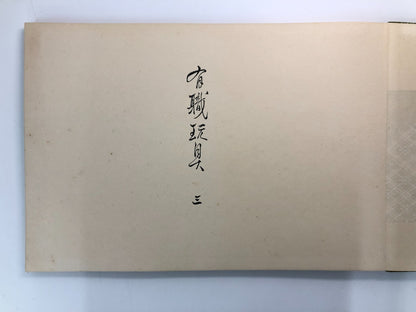 有職玩具 三